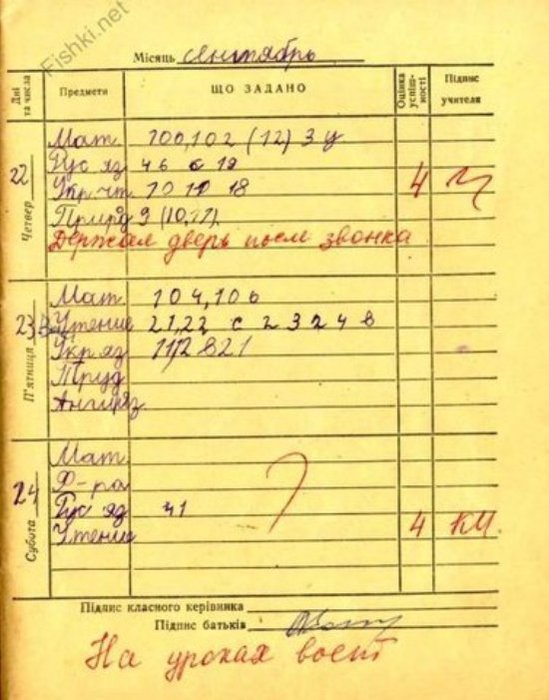 Fishki.net
Місяць сентябрь
Дні та числа Предмети ЩО ЗАДАНО Оцінка успіш- ності Підпис учителя
22 Четвер
Мат. 100,102 (12) 3 у
Рус яз 46 с 19
Укр.чт. 10 18 4
Природ 9 (10,11).
Держал дверь после звонка
23 П'ятниця
Мат. 104,106
Чтение 21,22 с 23 24 в
Укр яз 112 821
Труд
Англ.яз.
24 Субота
Мат.
Ф-ра
Рус яз 41
Чтение 4 КМ.
Підпис класного керівника
Підпис батьків
На уроках воет